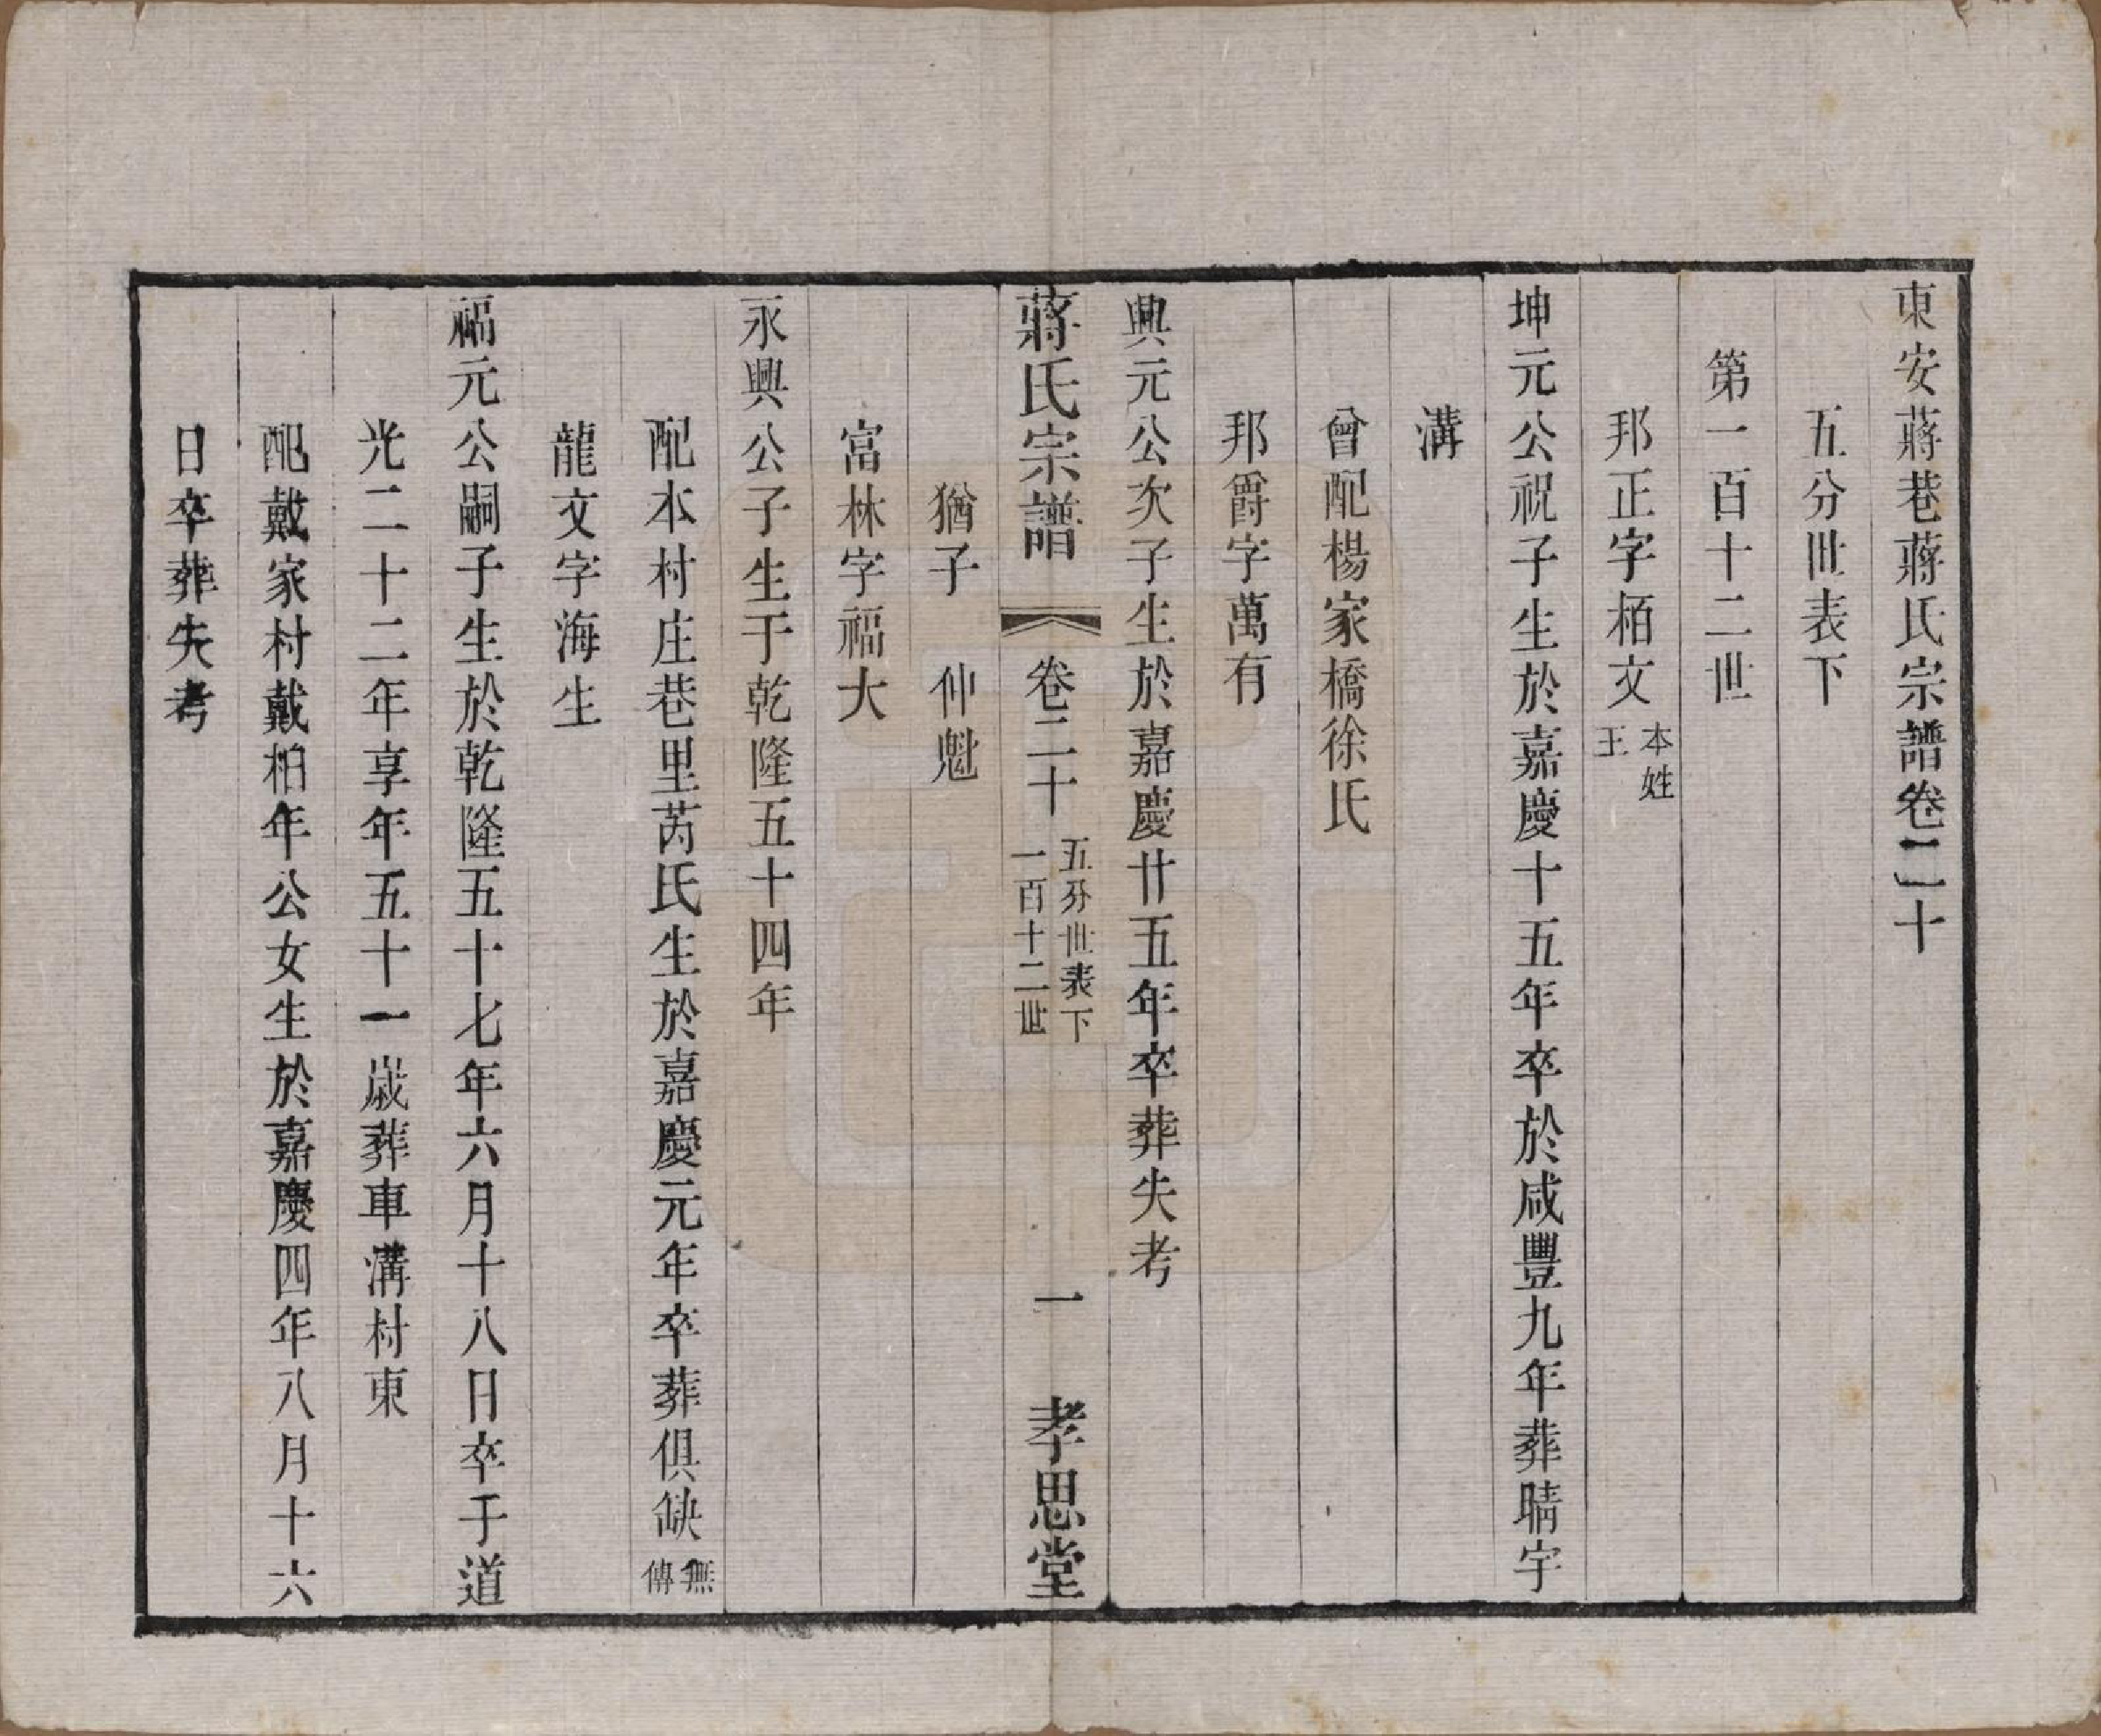 東安蔣巷蔣氏宗譜卷二十
五分世表下
第一百十二世
邦正字栢文本姓王
坤元公祝子生於嘉慶十五年卒於咸豐九年葬晴宇
溝
曾配楊家橋徐氏
邦爵字萬有
興元公次子生於嘉慶廿五年卒葬失考
蔣氏宗譜 卷二十 五分世表下 一百十二世 一 孝思堂
猶子 仲魁
富林字福大
永興公子生于乾隆五十四年
配本村庄巷里芮氏生於嘉慶元年卒葬俱缺無傳
龍文字海生
福元公嗣子生於乾隆五十七年六月十八日卒于道
光二十二年享年五十一歲葬車溝村東
配戴家村戴栢年公女生於嘉慶四年八月十六
日卒葬失考